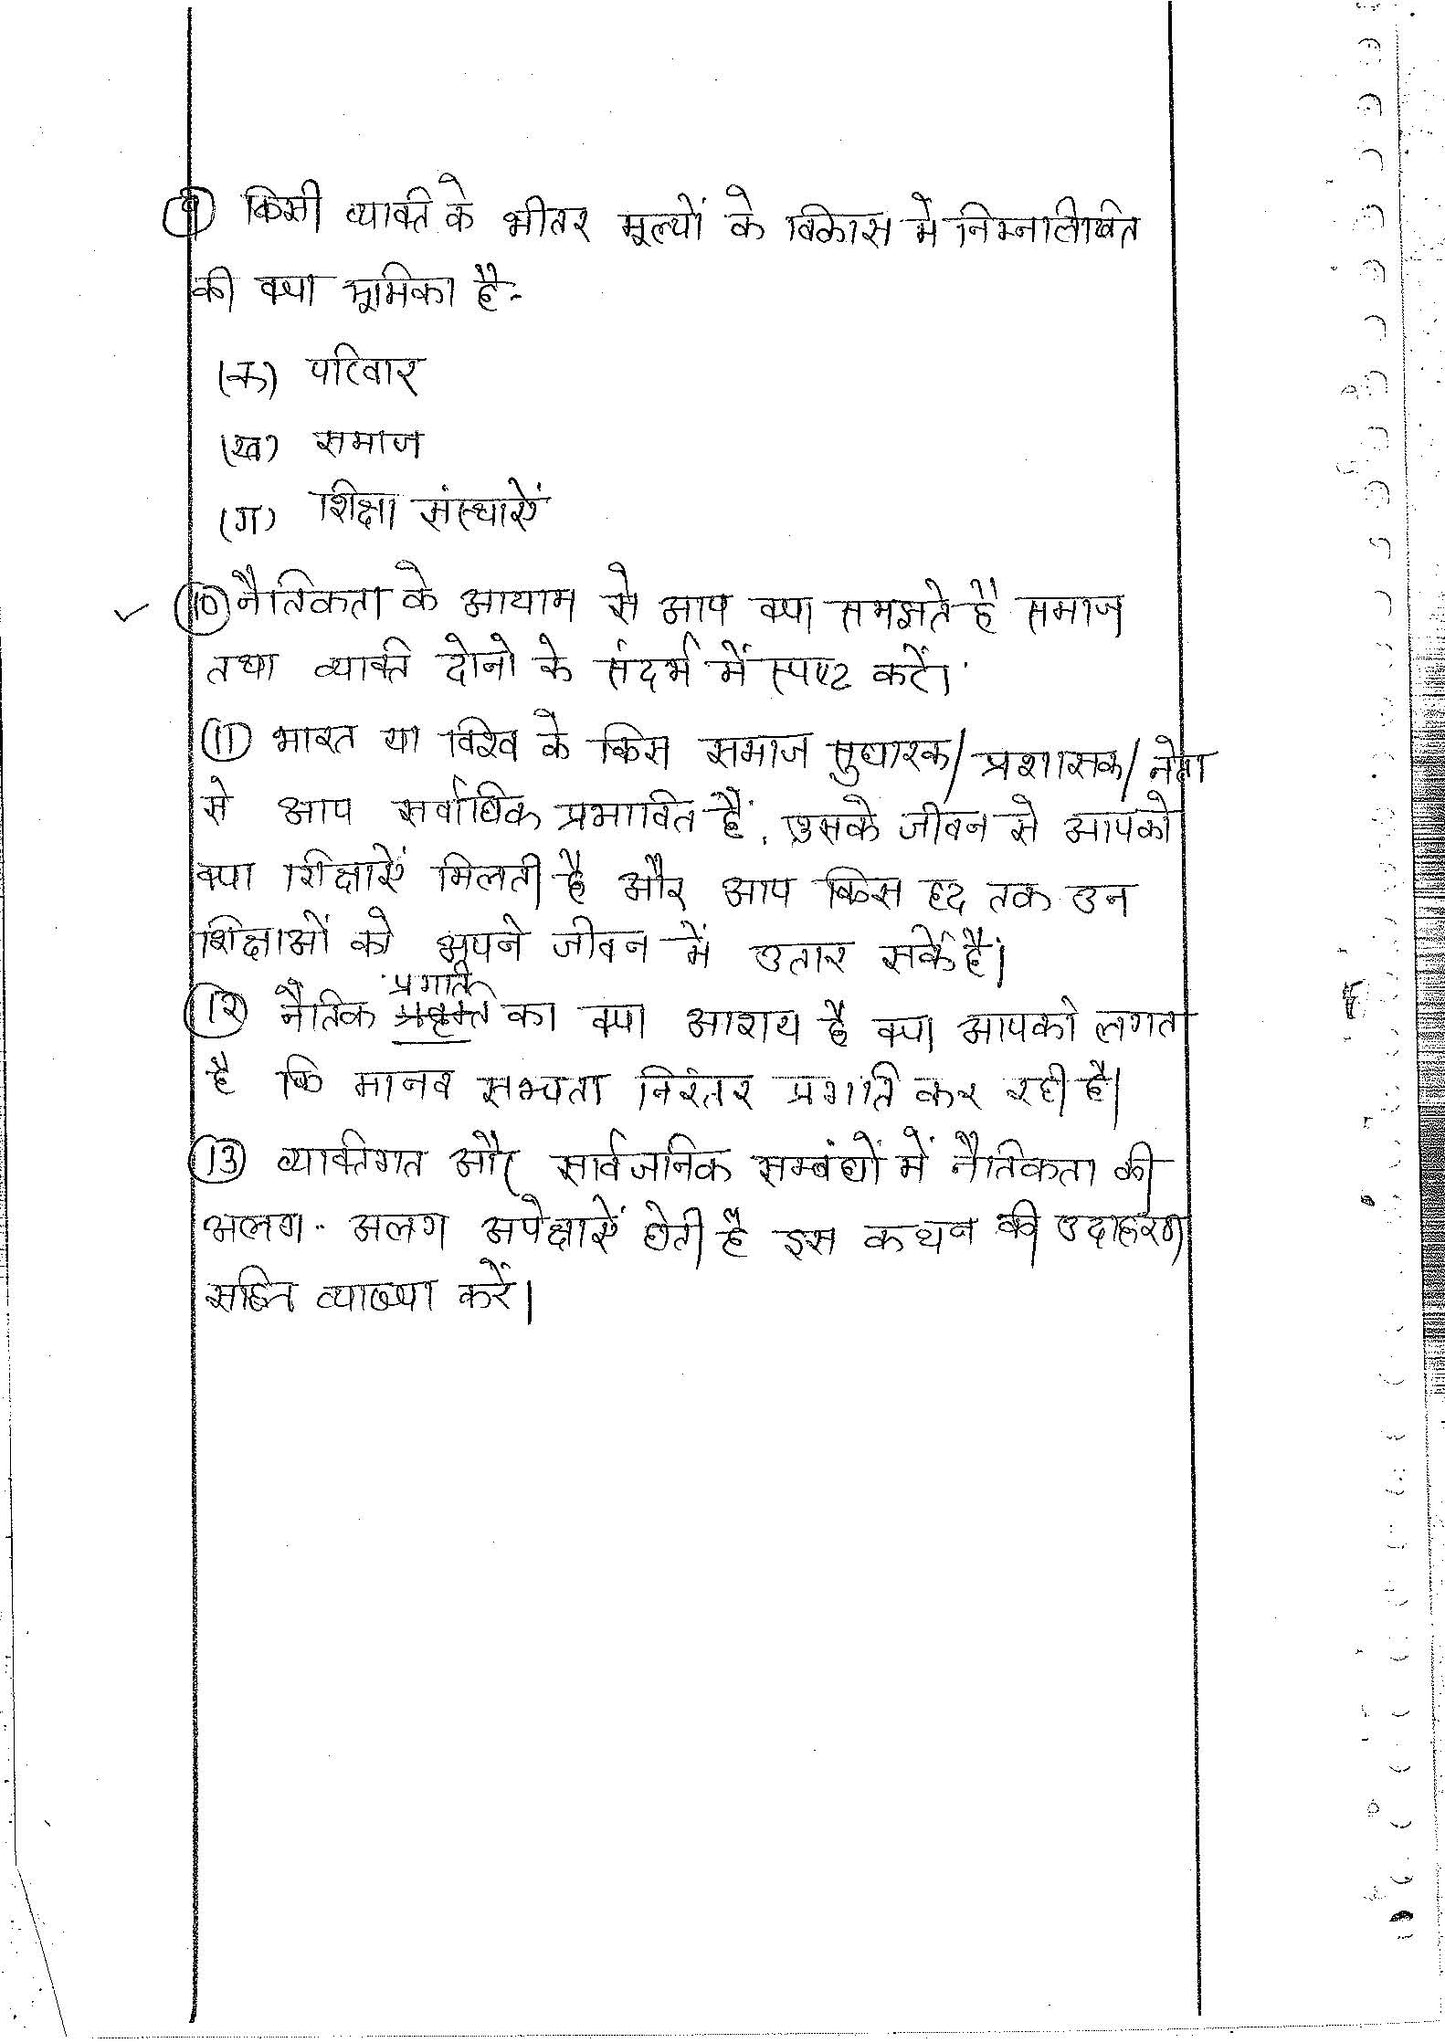 (9) किसी व्यक्ति के भीतर मूल्यों के विकास में निम्नलिखित
की क्या भूमिका है-
(क) परिवार
(ख) समाज
(ग) शिक्षा संस्थाऐं
✓ (10) नैतिकता के आयाम से आप क्या समझते है समाज
तथा व्यक्ति दोनो के संदर्भ में स्पष्ट करें।
(11) भारत या विश्व के किस समाज सुधारक/प्रशासक/नेता
से आप सर्वाधिक प्रभावित हैं, उसके जीवन से आपको
क्या शिक्षाऐं मिलती है और आप किस हद तक उन
शिक्षाओं को अपने जीवन में उतार सकें है।
प्रगति
(12) नैतिक का क्या आशय है क्या आपको लगता
है कि मानव सभ्यता निरंतर प्रगति कर रही है।
(13) व्यक्तिगत और सार्वजनिक सम्बंधों में नैतिकता की
अलग- अलग अपेक्षाऐं होती है इस कथन की उदाहरण
सहित व्याख्या करें।